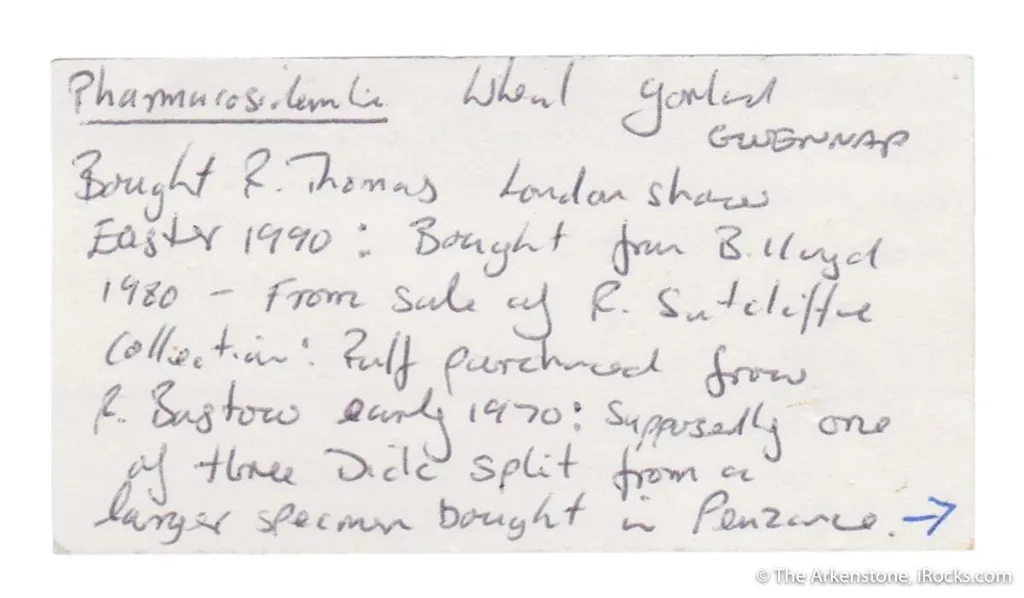 Pharmacosiderite Wheal Gorland
GWENNAP
Bought R. Thomas London show
Easter 1990 : Bought from B. Lloyd
1980 - From sale of R. Sutcliffe
Collection : Ralf purchased from
R. Bastow early 1970 : Supposedly one
of three Dick split from a
larger specimen bought in Penzance. →
© The Arkenstone, iRocks.com